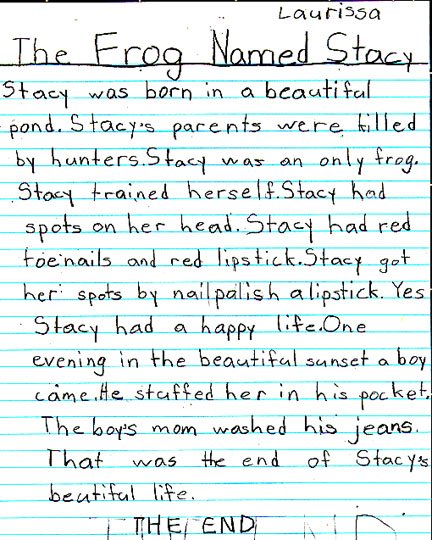 Laurissa
The Frog Named Stacy
Stacy was born in a beautiful
pond. Stacy's parents were killed
by hunters. Stacy was an only frog.
Stacy trained herself. Stacy had
spots on her head. Stacy had red
toenails and red lipstick. Stacy got
her spots by nailpalish a lipstick. Yes
Stacy had a happy life. One
evening in the beautiful sunset a boy
came. He stuffed her in his pocket.
The boy's mom washed his jeans.
That was the end of Stacy's
beutiful life.
THE END